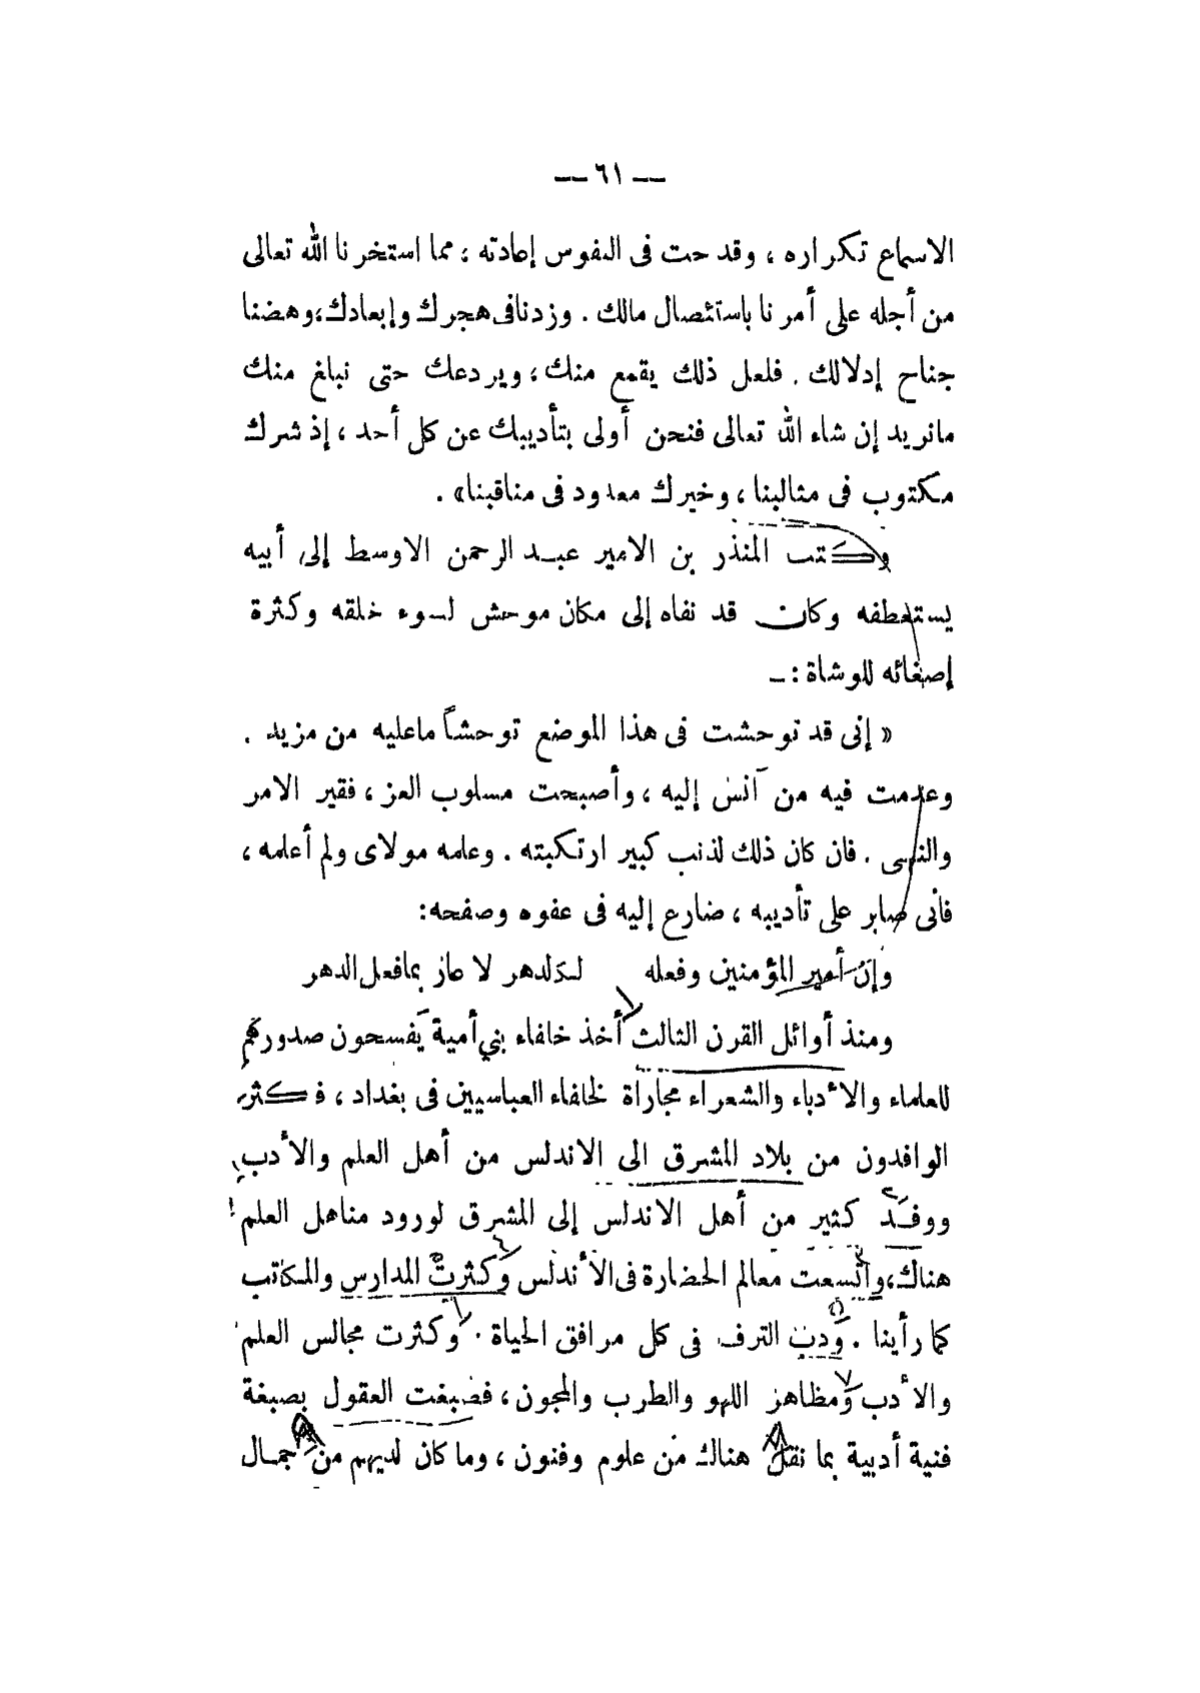 — ٦١ —
الاسماع تكراره ، وقدحت فى النفوس إعادته ؛ مما استخرنا الله تعالى
من أجله على أمرنا باستئصال مالك . وزدنافى هجرك وإبعادك،وهضنا
جناح إدلالك . فلعل ذلك يقمع منك ، ويردعك حتى نبلغ منك
مانريد إن شاء الله تعالى فنحن أولى بتأديبك عن كل أحد ، إذ شرك
مكتوب فى مثالبنا ، وخيرك معدود فى مناقبنا» .
وكتب المنذر بن الامير عبد الرحمن الاوسط إلى أبيه
يستعطفه وكان قد نفاه إلى مكان موحش لسوء خلقه وكثرة
إصغائه للوشاة : —
« إنى قد توحشت فى هذا الموضع توحشاً ماعليه من مزيد .
وعدمت فيه من آنس إليه ، وأصبحت مسلوب العز ، فقير الامر
والنهى . فان كان ذلك لذنب كبير ارتكبته . وعلمه مولاى ولم أعلمه ،
فأنى صابر على تأديبه ، ضارع إليه فى عفوه وصفحه :
وإن أمير المؤمنين وفعله لكالدهر لا عار بمافعل الدهر
ومنذ أوائل القرن الثالث أخذ خلفاء بني أمية يفسحون صدورهم
للعلماء والأدباء والشعراء مجاراة لخلفاء العباسيين فى بغداد ، فكثر
الوافدون من بلاد المشرق الى الاندلس من أهل العلم والأدب
ووفد كثير من أهل الاندلس إلى المشرق لورود مناهل العلم
هناك،واتسعت معالم الحضارة فى الأندلس وكثرت المدارس والمكاتب
كما رأينا . ودب الترف فى كل مرافق الحياة . وكثرت مجالس العلم
والأدب ومظاهر اللهو والطرب والمجون ، فصبغت العقول بصبغة
فنية أدبية بما نقل هناك من علوم وفنون ، وما كان لديهم من جمال